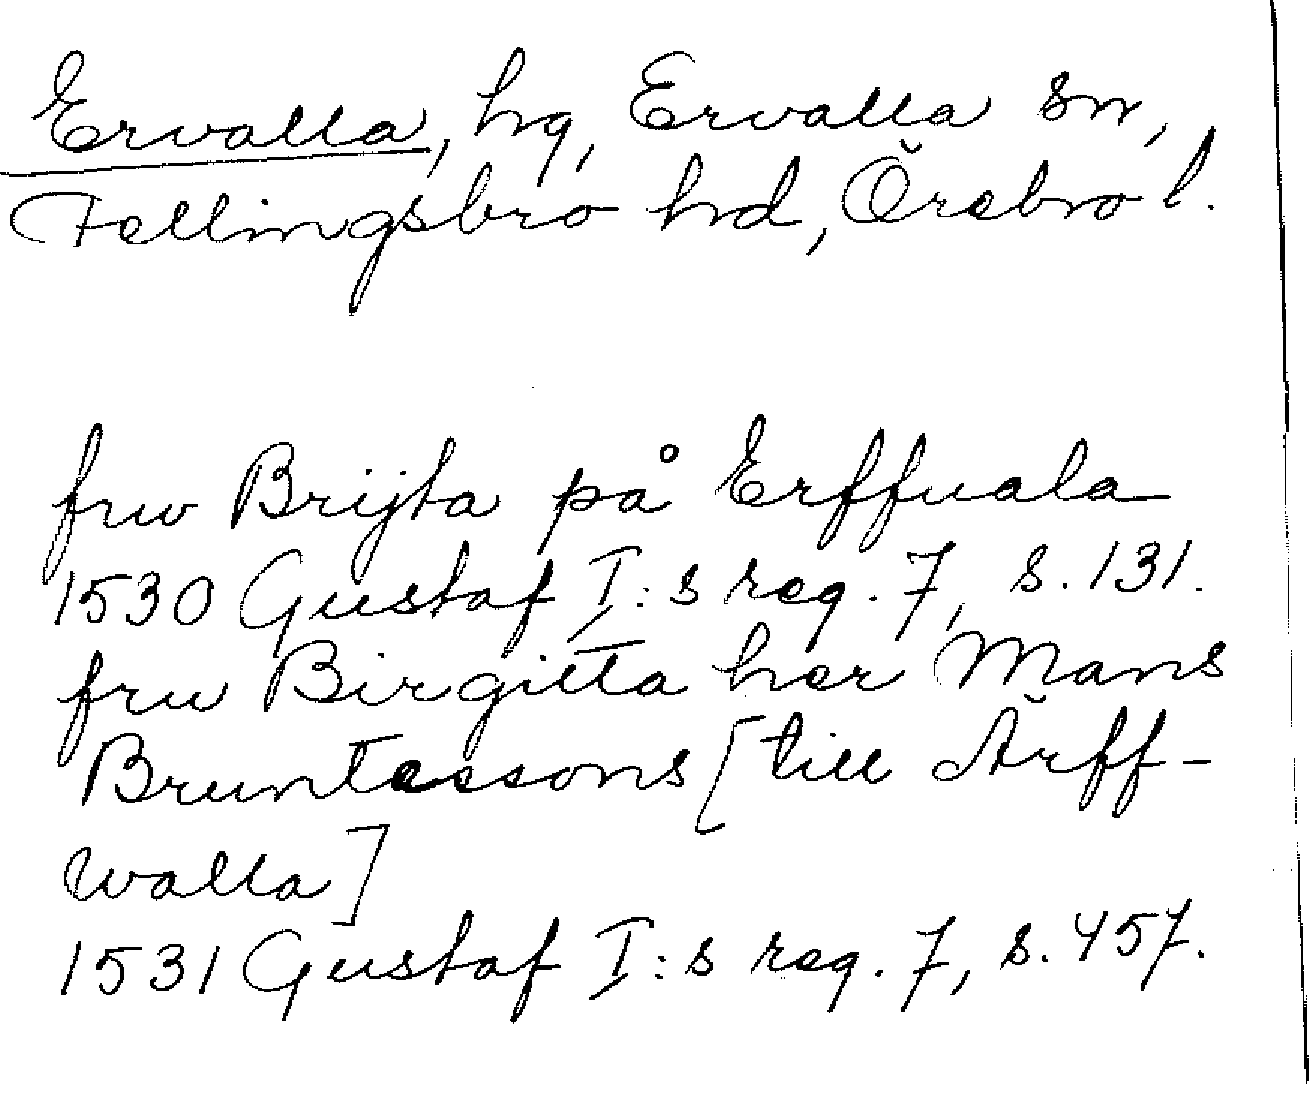 Ervalla, hg, Ervalla sn,
Fellingsbro hd, Örebro l.
frw Brijta på Erffuala
1530 Gustaf I:s reg. 7, s. 131.
frw Birgitta her Mans
Bruntessons [till Ärff-
walla]
1531 Gustaf I:s reg. 7, s. 457.